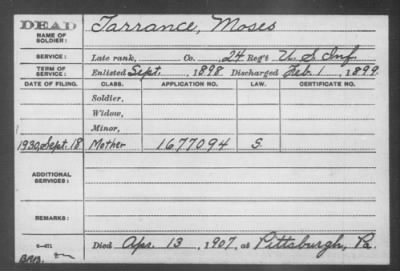 DEAD
NAME OF SOLDIER: Tarrance, Moses
SERVICE: Late rank, Co. 24 Reg't U.S. Inf.
TERM OF SERVICE: Enlisted Sept. , 1898 Discharged Feb. 1 , 1899.
DATE OF FILING. CLASS. APPLICATION NO. LAW. CERTIFICATE NO.
Soldier,
Widow,
Minor,
1930, Sept. 18 Mother 1677094 S.
ADDITIONAL SERVICES:
REMARKS:
Died Apr. 13 , 1907, at Pittsburgh, Pa.